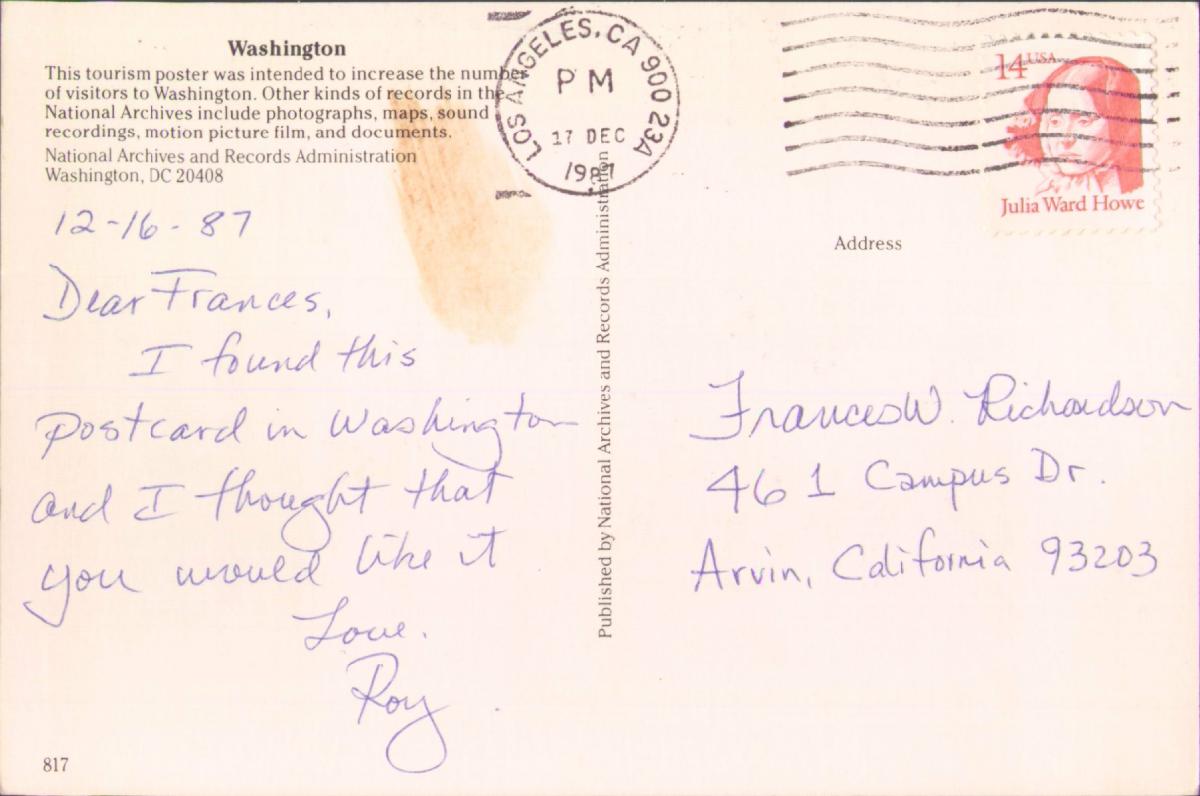 Washington
This tourism poster was intended to increase the number
of visitors to Washington. Other kinds of records in the
National Archives include photographs, maps, sound
recordings, motion picture film, and documents.
National Archives and Records Administration
Washington, DC 20408
12-16-87
Dear Frances,
I found this
postcard in Washington
and I thought that
you would like it
Love.
Roy
817
Published by National Archives and Records Administration
LOS ANGELES, CA 900 23A
PM
17 DEC
1987
14 USA
Julia Ward Howe
Address
Frances W. Richardson
461 Campus Dr.
Arvin, California 93203